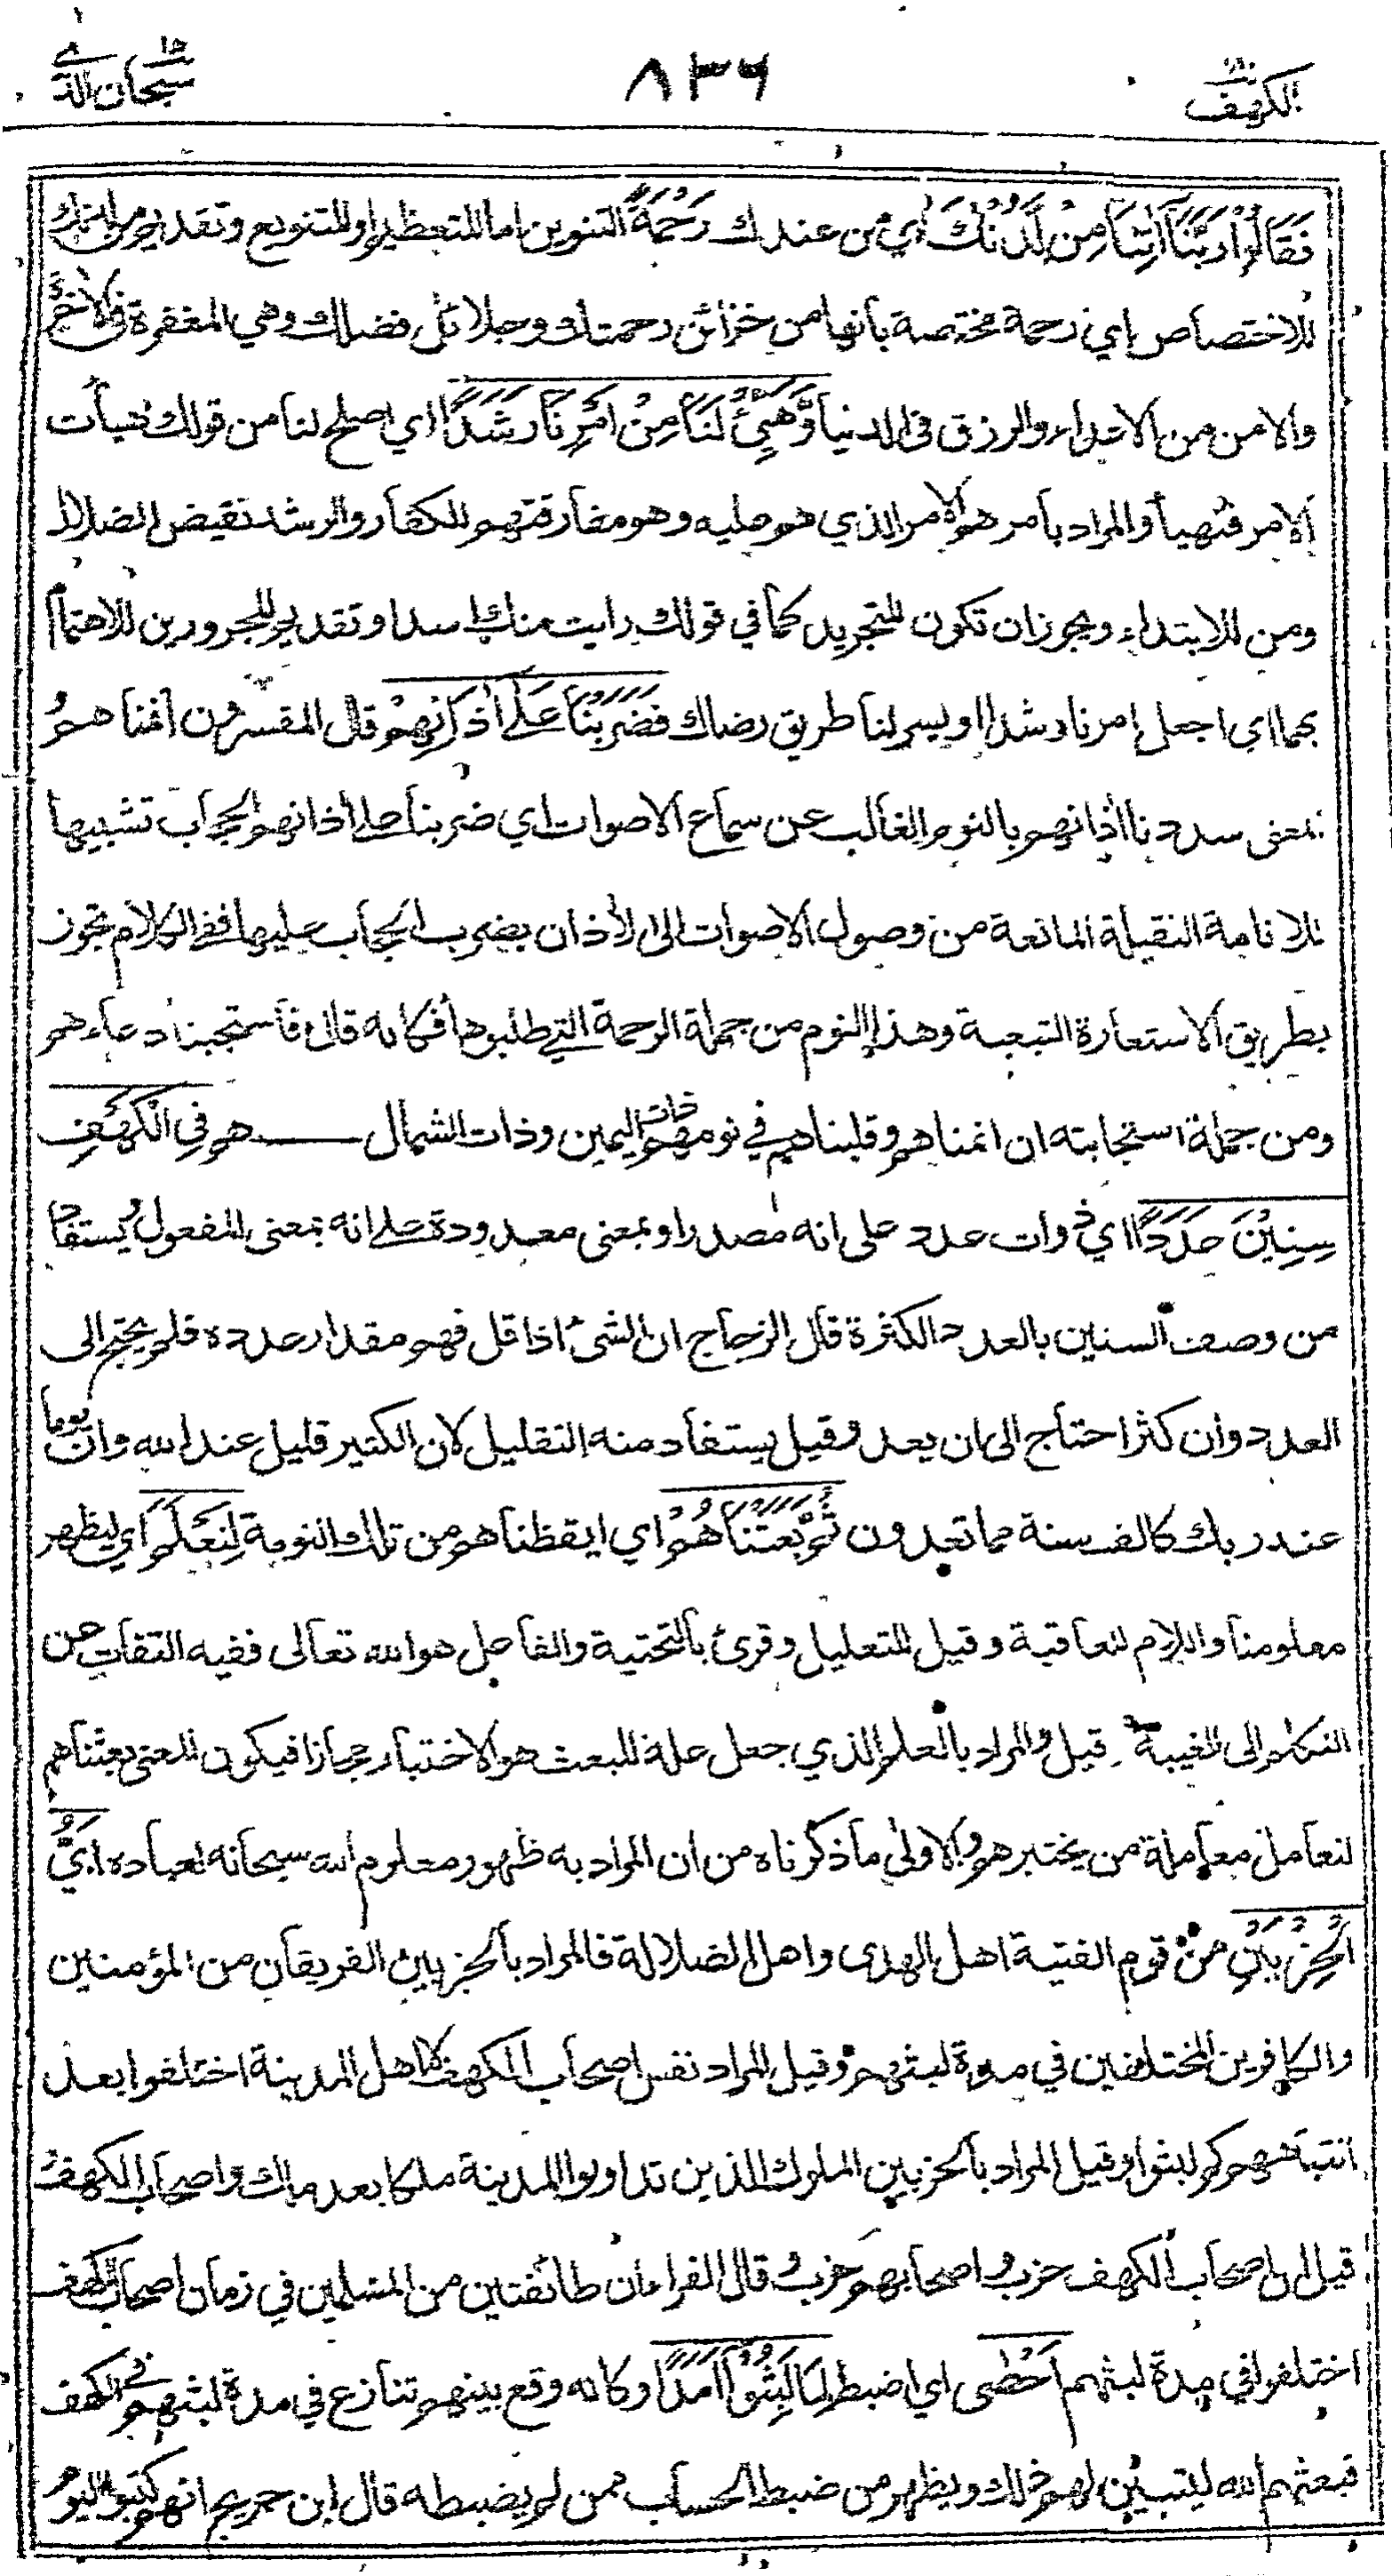 الكهف ١٨
٨٣٦
سبحان الذي ١٥
فَقَالُوْا رَبَّنَآ اٰتِنَا مِنْ لَّدُنْكَ اي من عندك رَحْمَةً التنوين اما للتعظيم او للتنويع وتقديم من لدنك
للاختصاص اي رحمة مختصة بانها من خزائن رحمتك وجلائل فضلك وهي المغفرة في الاخرة
والامن من الاعداء والرزق في الدنيا وَّهَيِّئْ لَنَا مِنْ اَمْرِنَا رَشَدًا اي اصلح لنا من قولك هيأت
الامر فتهيأ والمراد بامر هو الامر الذي هو عليه وهو مفارقتهم للكفار والرشد نقيض الضلال
ومن للابتداء ويجوز ان تكون للتجريد كما في قولك رايت منك اسدا وتقديم المجرورين للاهتمام
بهما اي اجعل امرنا رشدا او يسر لنا طريق رضاك فَضَرَبْنَا عَلٰٓى اٰذَانِهِمْ قال المفسرون انمناهم
بمعنى سددنا اذانهم بالنوم الغالب عن سماع الاصوات اي ضربنا على اذانهم الحجاب تشبيها
للانامة الثقيلة المانعة من وصول الاصوات الى الاذان بضرب الحجاب عليها ففي الكلام تجوز
بطريق الاستعارة التبعية وهذا النوم من جملة الرحمة التي طلبوها فكانه قال فاستجبنا دعاءهم
ومن جملة استجابته ان انمناهم وقلبناهم في نومهم ذات اليمين وذات الشمال هم فِي الْكَهْفِ
سِنِيْنَ عَدَدًا اي ذوات عدد على انه مصدر او بمعنى معدودة على انه بمعنى المفعول ويستفاد
من وصف السنين بالعدد الكثرة قال الزجاج ان الشئ اذا قل فهم مقدار عدده فلم يحتج الى
العدد وان كثر احتاج الى ان يعد وقيل يستفاد منه التقليل لان الكثير قليل عند الله وان يوما
عند ربك كالف سنة مما تعدون ثُمَّ بَعَثْنَاهُمْ اي ايقظناهم من تلك النومة لِنَعْلَمَ اي ليظهر
معلومنا واللام للعاقبة وقيل للتعليل وقرئ بالتحتية والفاعل هو الله تعالى ففيه التفات عن
التكلم الى الغيبة قيل والمراد بالعلم الذي جعل علة للبعث هو الاختبار مجازا فيكون المعنى بعثناهم
لنعاملهم معاملة من يختبرهم والاولى ما ذكرناه من ان المراد به ظهور معلوم الله سبحانه لعباده اَيُّ
الْحِزْبَيْنِ من قوم الفتية اهل الهدى واهل الضلالة فالمراد بالحزبين الفريقان من المؤمنين
والكافرين المختلفين في مدة لبثهم وقيل المراد نفس اصحاب الكهف كاهل المدينة اختلفوا بعد
انتباههم كم لبثوا وقيل المراد بالحزبين الملوك الذين تداولوا المدينة ملكا بعد ملك واصحاب الكهف
قيل ان اصحاب الكهف حزب واصحابهم حزب وقال الفراء ان طائفتين من المسلمين في زمان اصحاب الكهف
اختلفوا في مدة لبثهم اَحْصٰى اي اضبط لِمَا لَبِثُوْٓا اَمَدًا وكانه وقع بينهم تنازع في مدة لبثهم في الكهف
فبعثهم الله ليتبين لهم ذلك ويظهر من ضبط الحساب ممن لم يضبطه قال ابن جريج انهم كتبوا اليوم